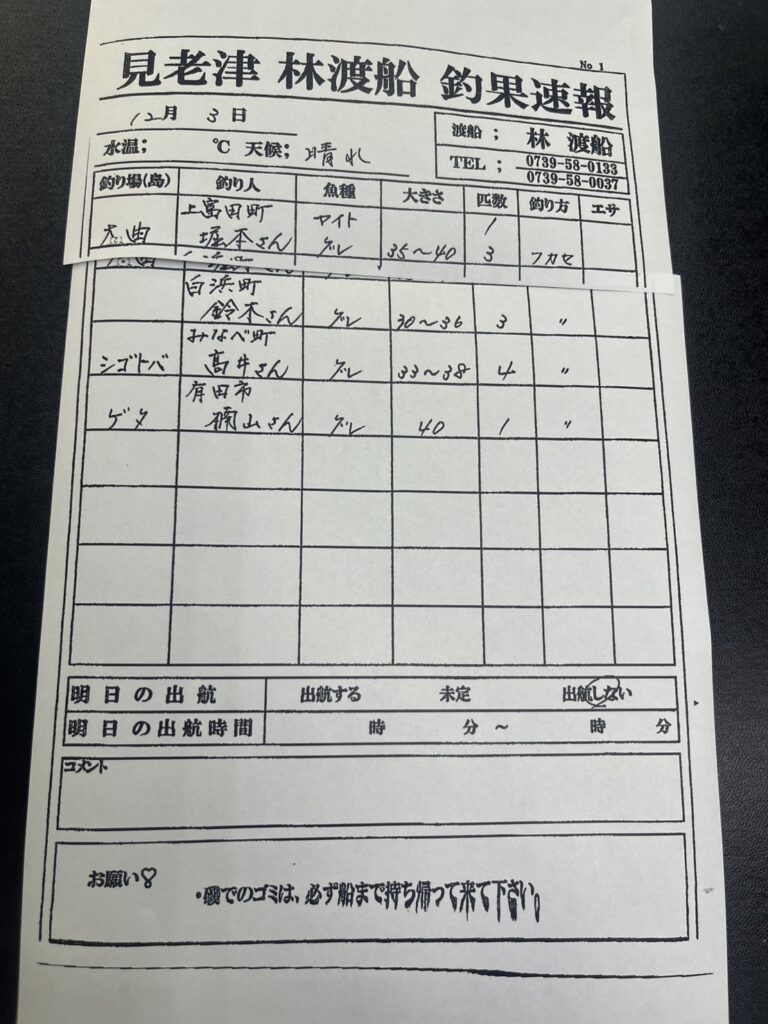 No 1
見老津 林渡船 釣果速報
12月 3日
水温; ℃ 天候; 晴れ
渡船 ; 林 渡船
TEL ; 0739-58-0133
0739-58-0037
釣り場(島) 釣り人 魚種 大きさ 匹数 釣り方 エサ
上富田町 ヤイト 1
大曲 堀本さん グレ 35〜40 3 フカセ
白浜町
鈴木さん グレ 30〜36 3 〃
みなべ町
シゴトバ 高井さん グレ 33〜38 4 〃
有田市
ゲタ 楠山さん グレ 40 1 〃
明日の出航 出航する 未定 出航しない
明日の出航時間 時 分 〜 時 分
コメント
お願い♡
・磯でのゴミは、必ず船まで持ち帰って来て下さい。